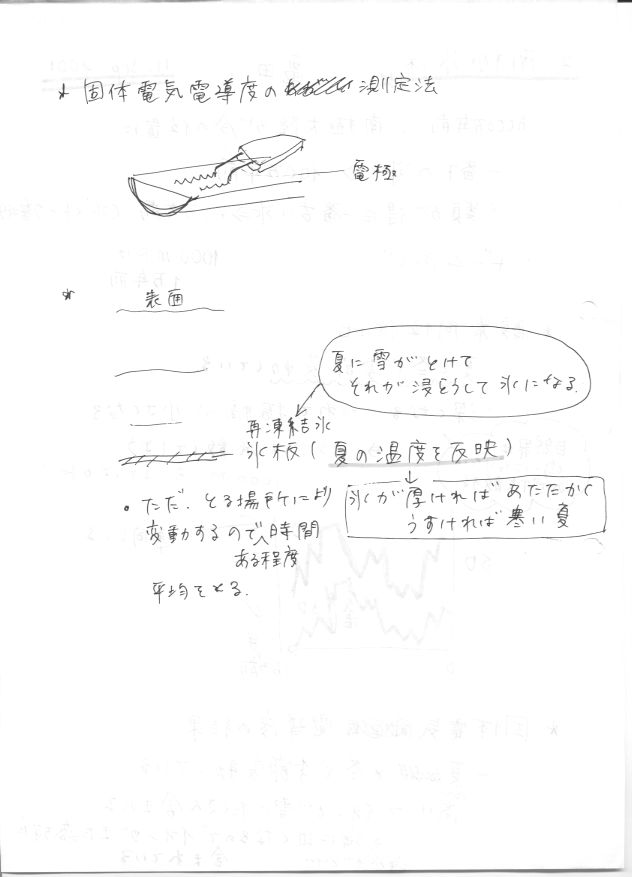 * 固体電気電導度の測定法
電極
* 表面
夏に雪がとけて
それが浸とうして氷になる.
再凍結氷
氷板(夏の温度を反映)
氷が厚ければあたたかく
うすければ寒い夏
・ただ、とる場所により
変動するので、時間
ある程度
平均をとる.